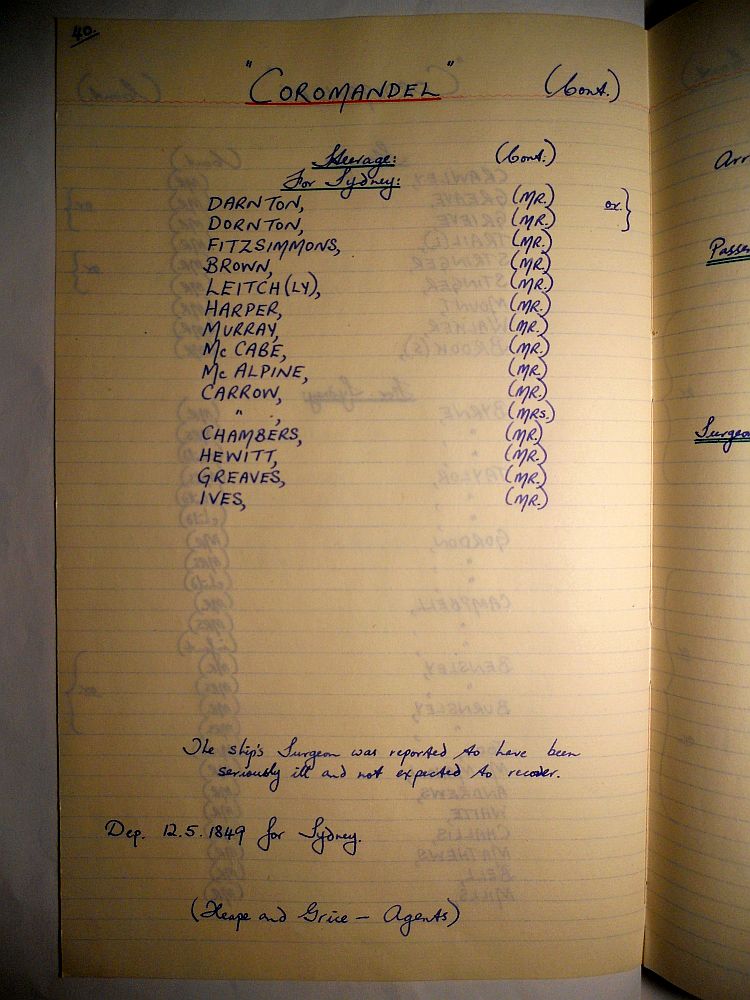 40.
"COROMANDEL" (Cont.)
Steerage: (Cont.)
For Sydney:
DARNTON, (MR.) or }
DORNTON, (MR.)
FITZSIMMONS, (MR.)
BROWN, (MR.)
LEITCH(LY), (MR.)
HARPER, (MR.)
MURRAY, (MR.)
Mc CABE, (MR.)
Mc ALPINE, (MR.)
CARROW, (MR.)
" , (MRS.)
CHAMBERS, (MR.)
HEWITT, (MR.)
GREAVES, (MR.)
IVES, (MR.)
The ship's Surgeon was reported to have been
seriously ill and not expected to recover.
Dep. 12.5.1849 for Sydney.
(Heape and Grice - Agents)
Arr
Passe
Surgeo